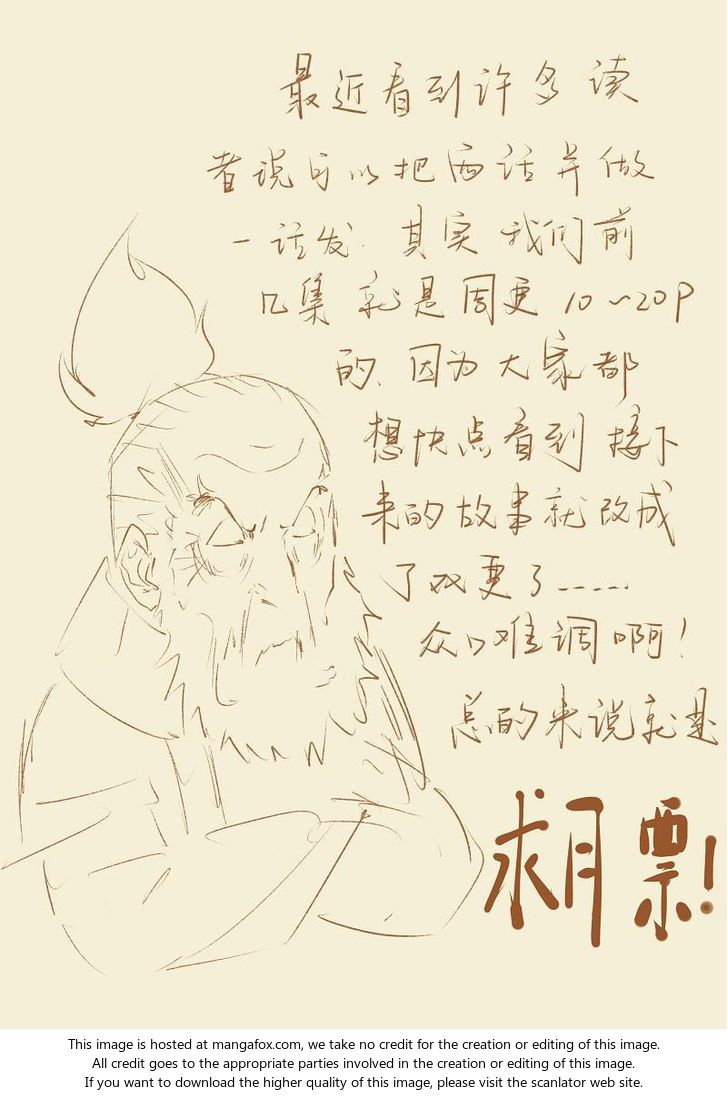 最近看到许多读
者说可以把两话并做
一话发. 其实我们前
几集就是周更10~20P
的、因为大家都
想快点看到接下
来的故事就改成
了双更了......
众口难调啊!
总的来说就是
求月票!
This image is hosted at mangafox.com, we take no credit for the creation or editing of this image.
All credit goes to the appropriate parties involved in the creation or editing of this image.
If you want to download the higher quality of this image, please visit the scanlator web site.